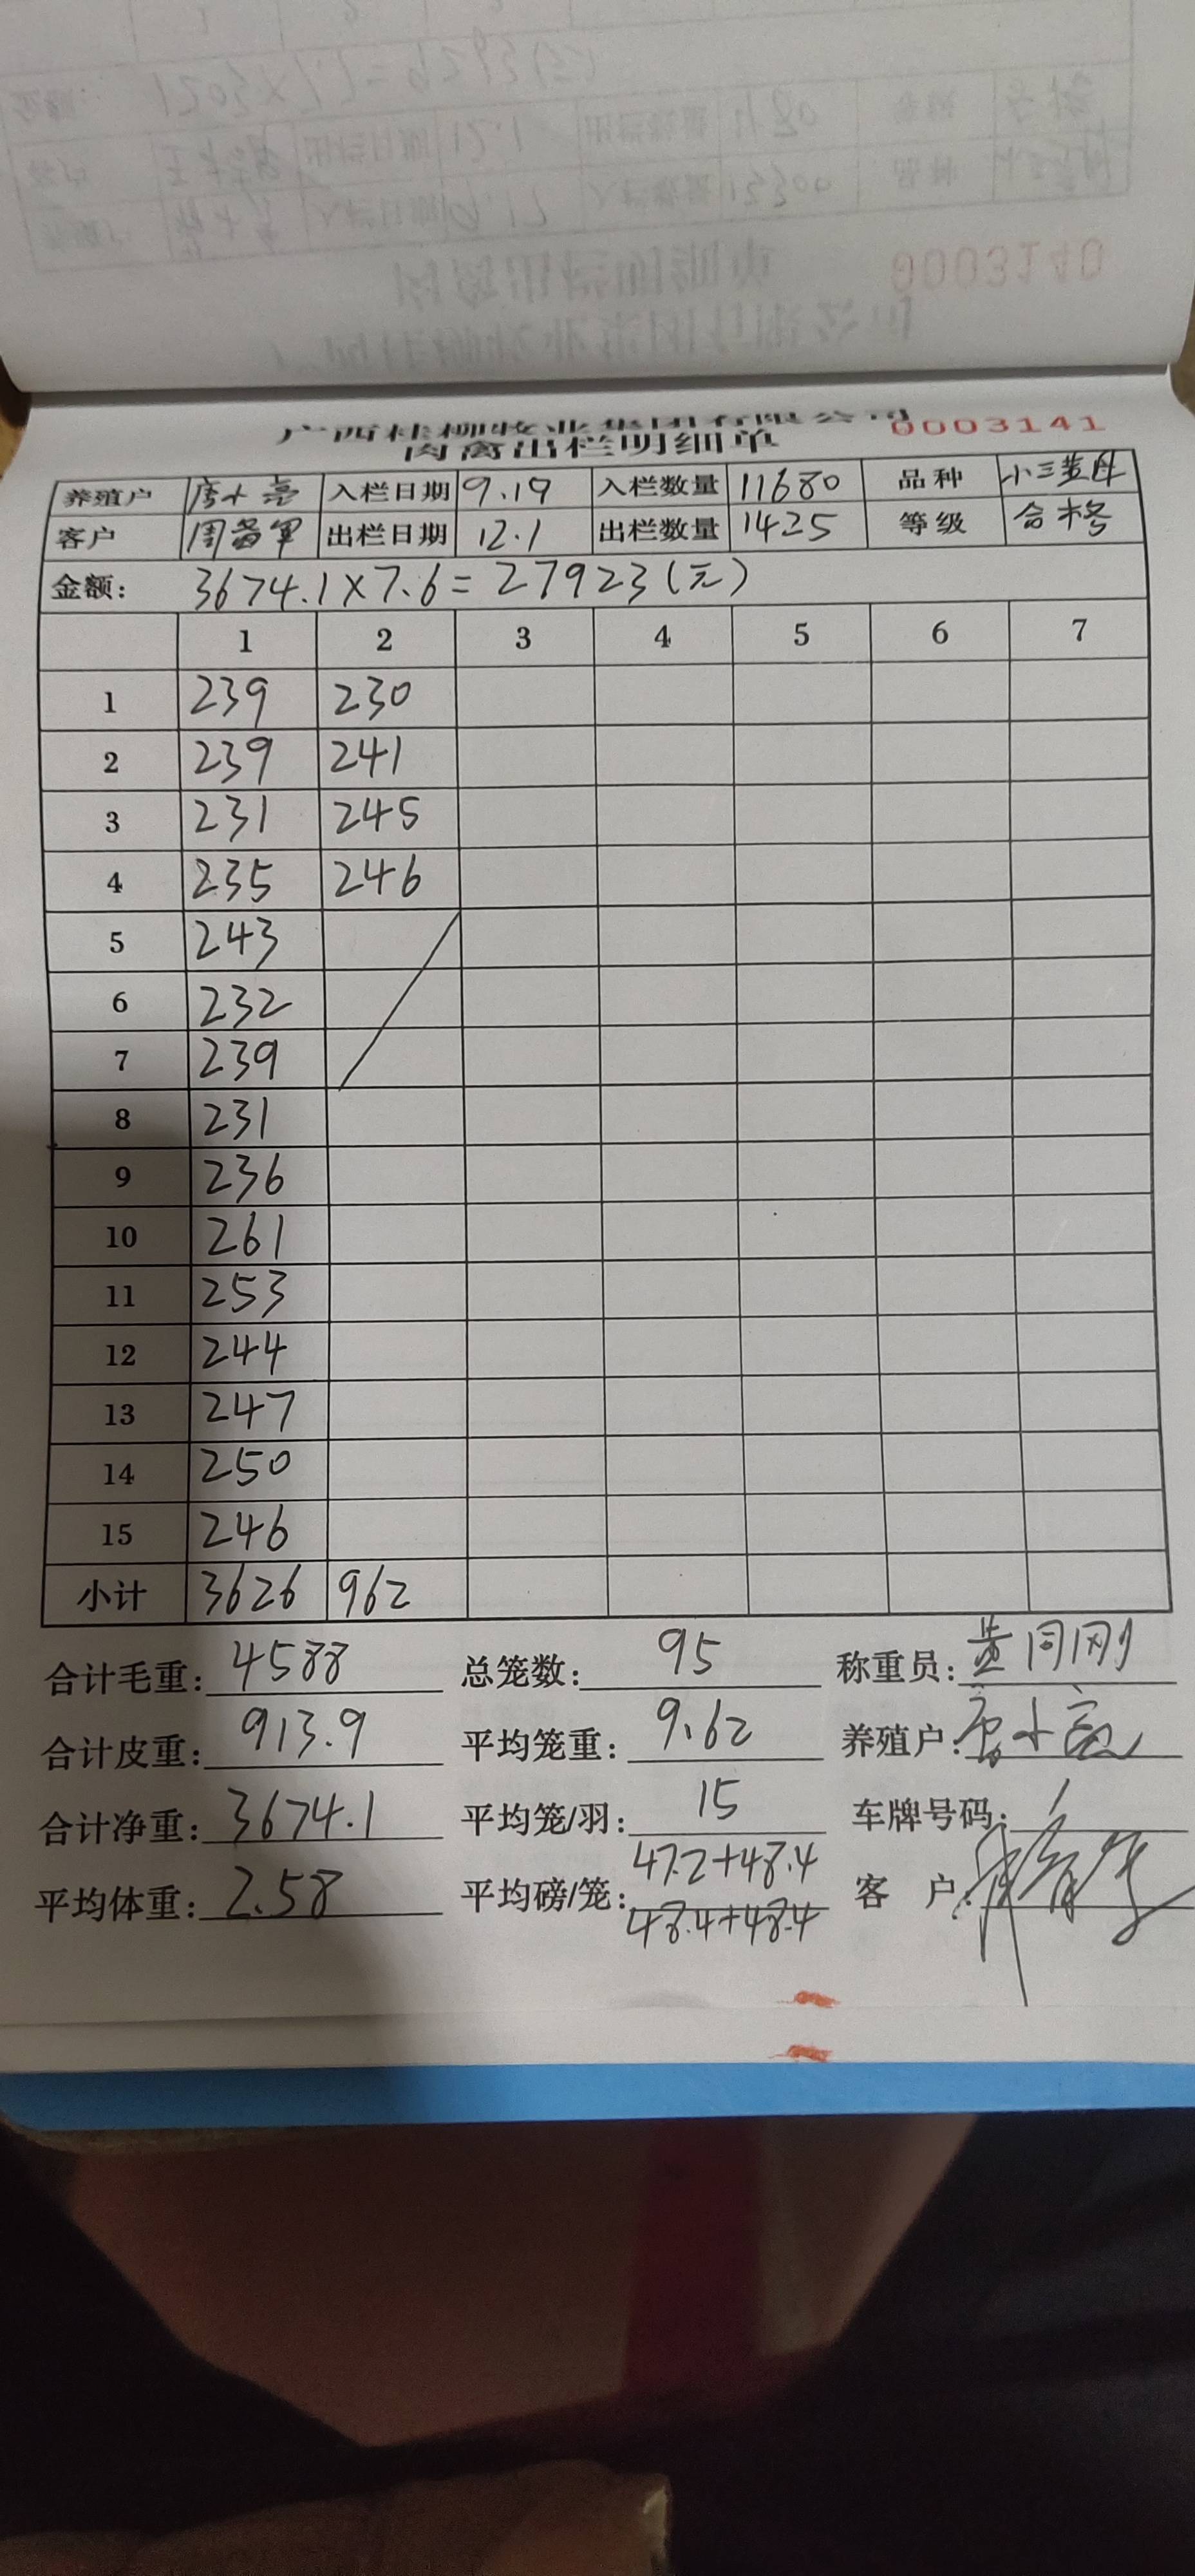 0003140
广西桂柳牧业集团有限公司
肉禽出栏明细单 0003141
养殖户 唐小亮 入栏日期 9.19 入栏数量 11680 品种 小三黄母
客户 周备军 出栏日期 12.1 出栏数量 1425 等级 合格
金额: 3674.1×7.6=27923(元)
1 2 3 4 5 6 7
1 239 230
2 239 241
3 231 245
4 235 246
5 243
6 232
7 239
8 231
9 236
10 261
11 253
12 244
13 247
14 250
15 246
小计 3626 962
合计毛重: 4588 总笼数: 95 称重员: 黄同刚
合计皮重: 913.9 平均笼重: 9.62 养殖户: 唐小亮
合计净重: 3674.1 平均笼/羽: 15 车牌号码: /
平均体重: 2.58 平均磅/笼: 47.2+48.4 客 户:
48.4+48.4